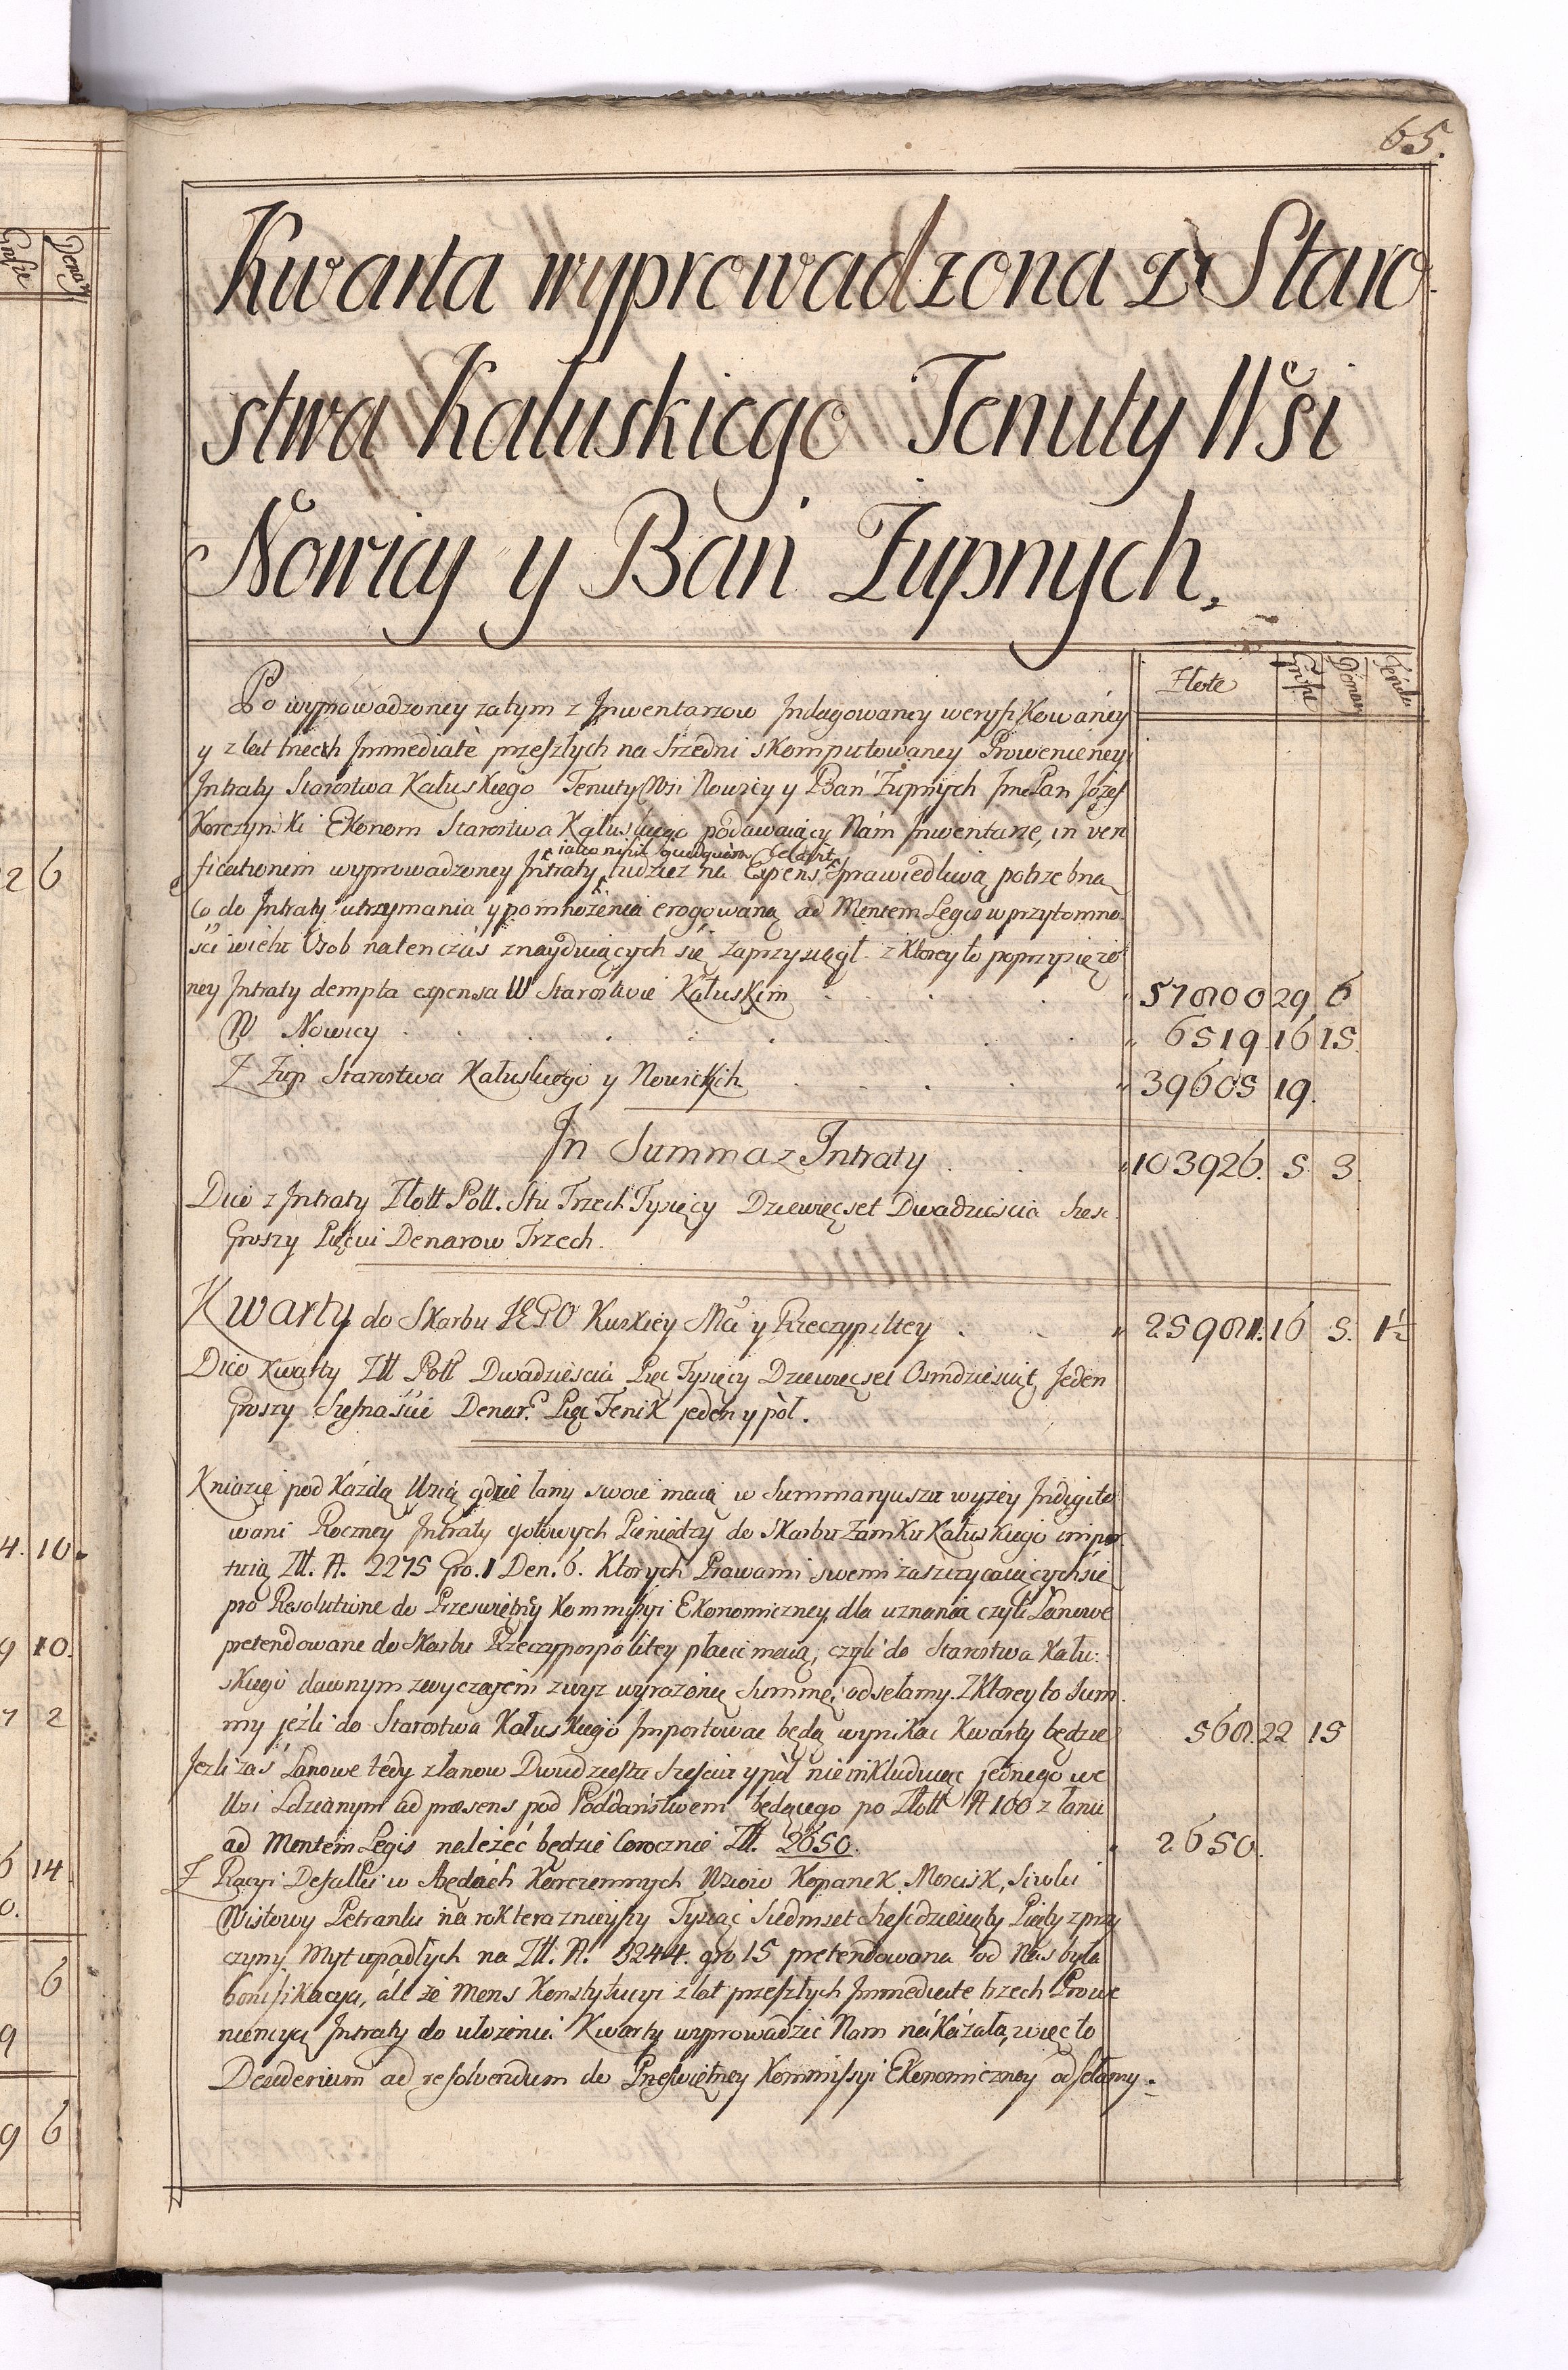 65.
Kwarta wyprowadzona z Staro-
stwa Kałuskiego Tenuty Wsi
Nowicy y Bań Zupnych,
Złote Grosze Denar Fenik
Po wyprowadzoney zatym z Inwentarzow Indagowaney weryfikowáney
y z lat trzech Immediatè przeszłych na Srzedni skomputowaney Prowenieney
Intraty Starostwa Kałuskiego Tenuty Wsi Nowicy y Bań Zupnych Jmć Pan Józef
Korczynski Ekonom Starostwa Kałuskiego podawaiący Nám Inwentarze, in veri
iako nihil quidquam celavit,
ficationem wyprowadzoney Intraty tudziez na Expens sprawiedliwą potrzebną
Co do Intraty utrzymania y pomnożenia erogowaną ad Mentem Legis w przytomno-
ści wielu Osob natenczás znayduiących się zaprzysiągł. z Ktorey to poprzysięzo
ney Intraty dempta expensa W Starostwie Kałuskim 57800 29 6
W Nowicy 6519 16 15
Z Zup Starostwa Kałuskiego y Nowickich 39605 19.
In Summa z Intraty 103926. 5. 3
Dico z Intraty Złott Poll. Stu Trzech Tysięcy Dziewięcset Dwadzieścia Szesc
Groszy Pięciu Denarow Trzech.
Kwarty do Skarbu JEGO Kuskiey Mci y Rzeczypltey 25981. 16 5. 1½
Dico Kwarty Złł Poll Dwadzieścia Pięc Tysięcy Dziewięcset Osmdziesiąt Jeden
Groszy Szesnaście Denar. Pięc Fenik jeden y pòł.
Kniazie pod Káżdą Wsią gdzie łany swoie maią w Summaryuszu wyżey Indigito
wani Roczney Intraty gotowych Pieniędzy do Skarbu Zamku Kałuskiego impor
tuią Złł. P. 2275 Gro. 1 Den. 6. Ktorych Prawami swemi zaszczycaiących się
pro Resolutione do Przeswiętny Kommissyi Ekonomiczney, dla uznania czyli Łanowe
pretendowane do Skarbu Rzeczypospolitey płacic maią, czyli do Starostwa Kału:
skiego dawnym zwyczajem zwyz wyrażonę Summę, odsełamy. Z Ktorey to Sum
my jeżli do Starostwa Kałuskiego Importowac będą wynikac Kwarty będzie 568. 22 15
Jezli zaś Łanowe tedy z łanow Dwudziestu Sześciu y pòł nie inkluduiąc jednego we
Wsi Ldzianym ad præsens pod Poddaństwem będącego po Złott P 100 z łanu
ad Mentem Legis należéć będzie Corocznie Złł. 2650. 2650.
Z Racyi Defalki w Arędách Karczemnych Wsiow Kopanek Moscisk, Siwki
Wistowy Petranki na rok teraznieyszy Tysiąc Siedmset Szescdziesiąty Piąty z przy
czyny Myt upadłych na Złł. P. 3244. gro 15 pretendowana od Nas była
bonifikacya, ále że Mens Konstytucyi z lat przeszłych Immediate trzech Prowe
niencyą Intraty do ułożenia Kwarty wyprowadzić Nam nákázała, więc to
Desiderium ad resolvendum do Przeswiętney Kommissyi Ekonomiczney odsełamy.